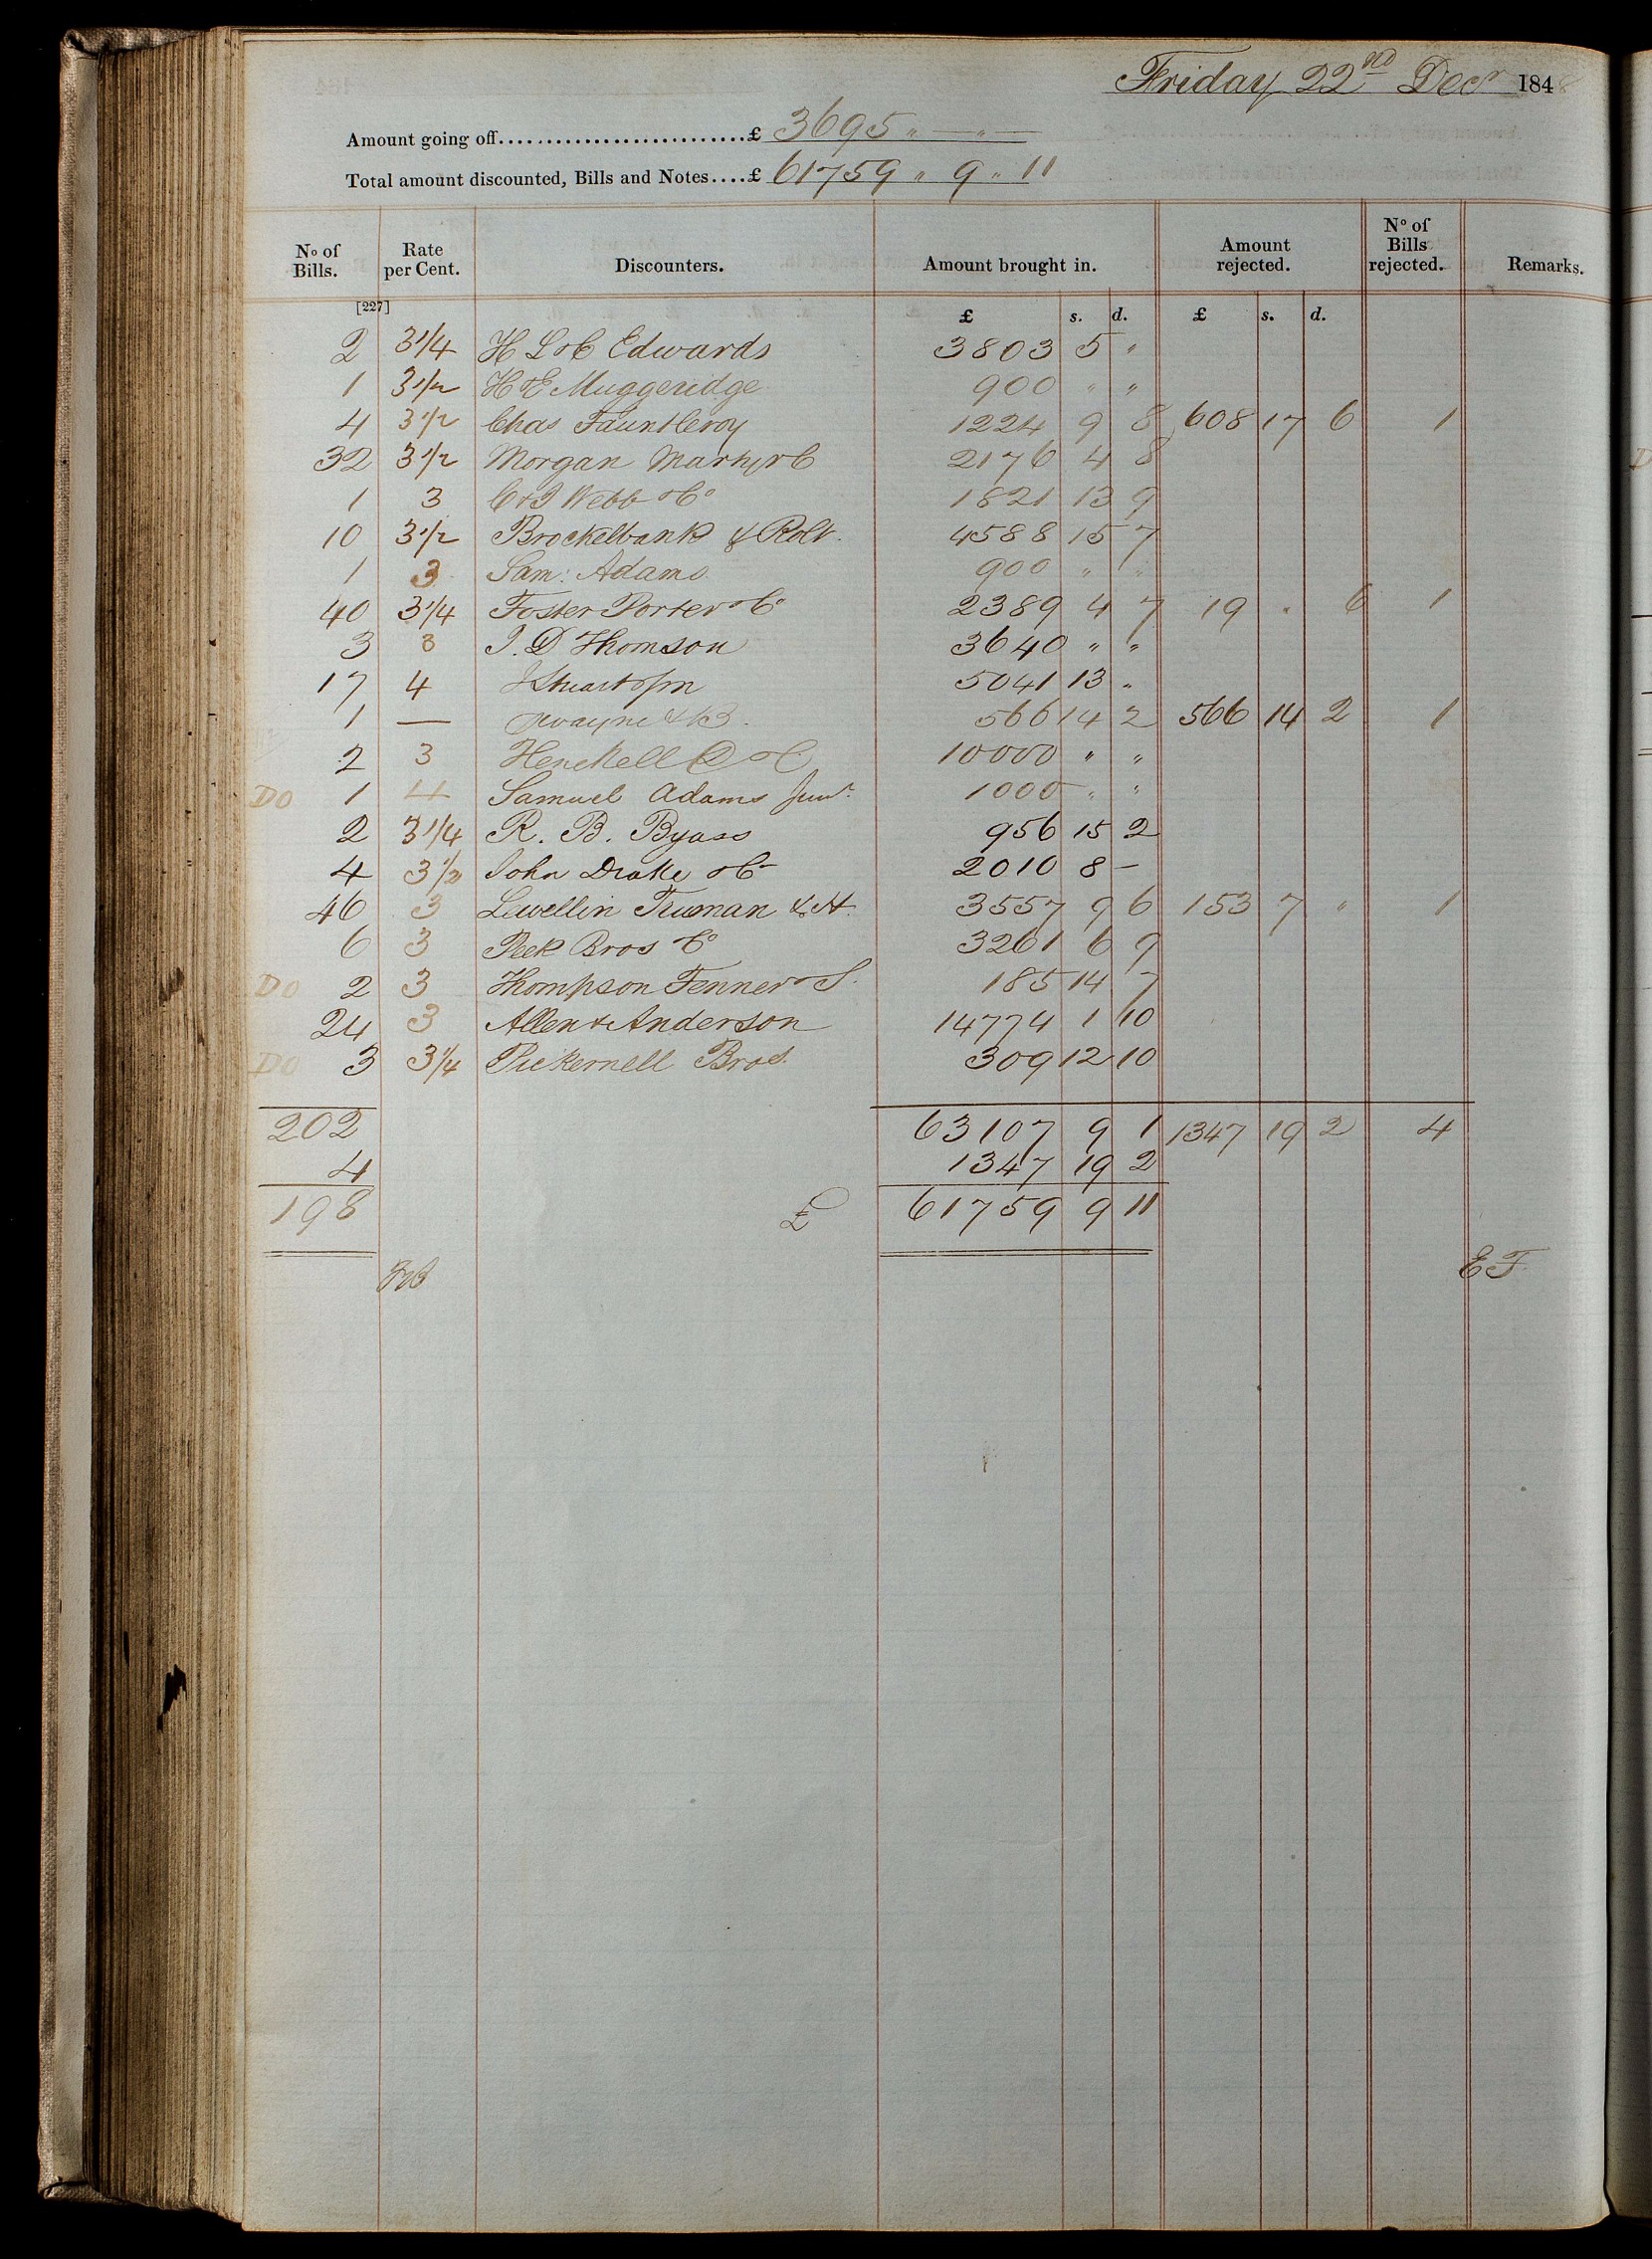 Friday 22nd Decr 1848
Amount going off...........................£ 3695 " — " —
Total amount discounted, Bills and Notes....£ 61759 " 9 " 11
No of Bills. Rate per Cent. Discounters. Amount brought in. Amount rejected. No of Bills rejected. Remarks.
[227] £ s. d. £ s. d.
2 3 1/4 H L & C Edwards 3803 5 "
1 3 1/2 H & E Muggeridge 900 " "
4 3 1/2 Chas Fauntleroy 1224 9 8 608 17 6 1
32 3 1/2 Morgan Martyr & C 2176 4 8
1 3 C & J Webb & Co 1821 13 9
10 3 1/2 Brockelbank & Rolt. 4588 15 7
1 3 Sam: Adams 900 " "
40 3 1/4 Foster Porter & Co 2389 4 7 19 " 6 1
3 3 J. D Thomson 3640 " "
17 4 J Stuart & Jm 5041 13 "
1 — Swayne & B. 566 14 2 566 14 2 1
2 3 Henckell & C 10000 " "
DO 1 4 Samuel Adams Junr. 1000 " "
2 3 1/4 R. B. Byass 956 15 2
4 3 1/2 John Drake & Co 2010 8 –
46 3 Lewellin Truman & H. 3557 9 6 153 7 " 1
6 3 Peek Bros & Co 3261 6 9
DO 2 3 Thompson Fenner & S. 185 14 7
24 3 Allen & Anderson 14774 1 10
DO 3 3 1/4 Pickernell Bros. 309 12 10
202 63107 9 1 1347 19 2 4
4 1347 19 2
198 £ 61759 9 11
E F